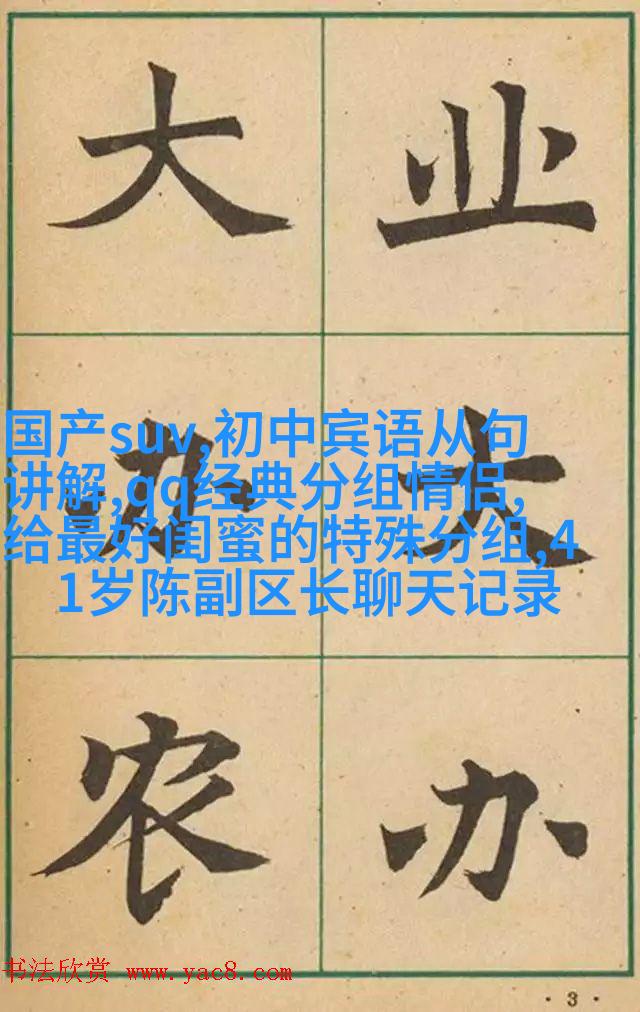 大办农
业大办
国产suv,初中宾语从句
讲解,qq经典分组情侣,
给最好闺蜜的特殊分组,4
1岁陈副区长聊天记录
书法欣赏 www.yac8.com
·3·